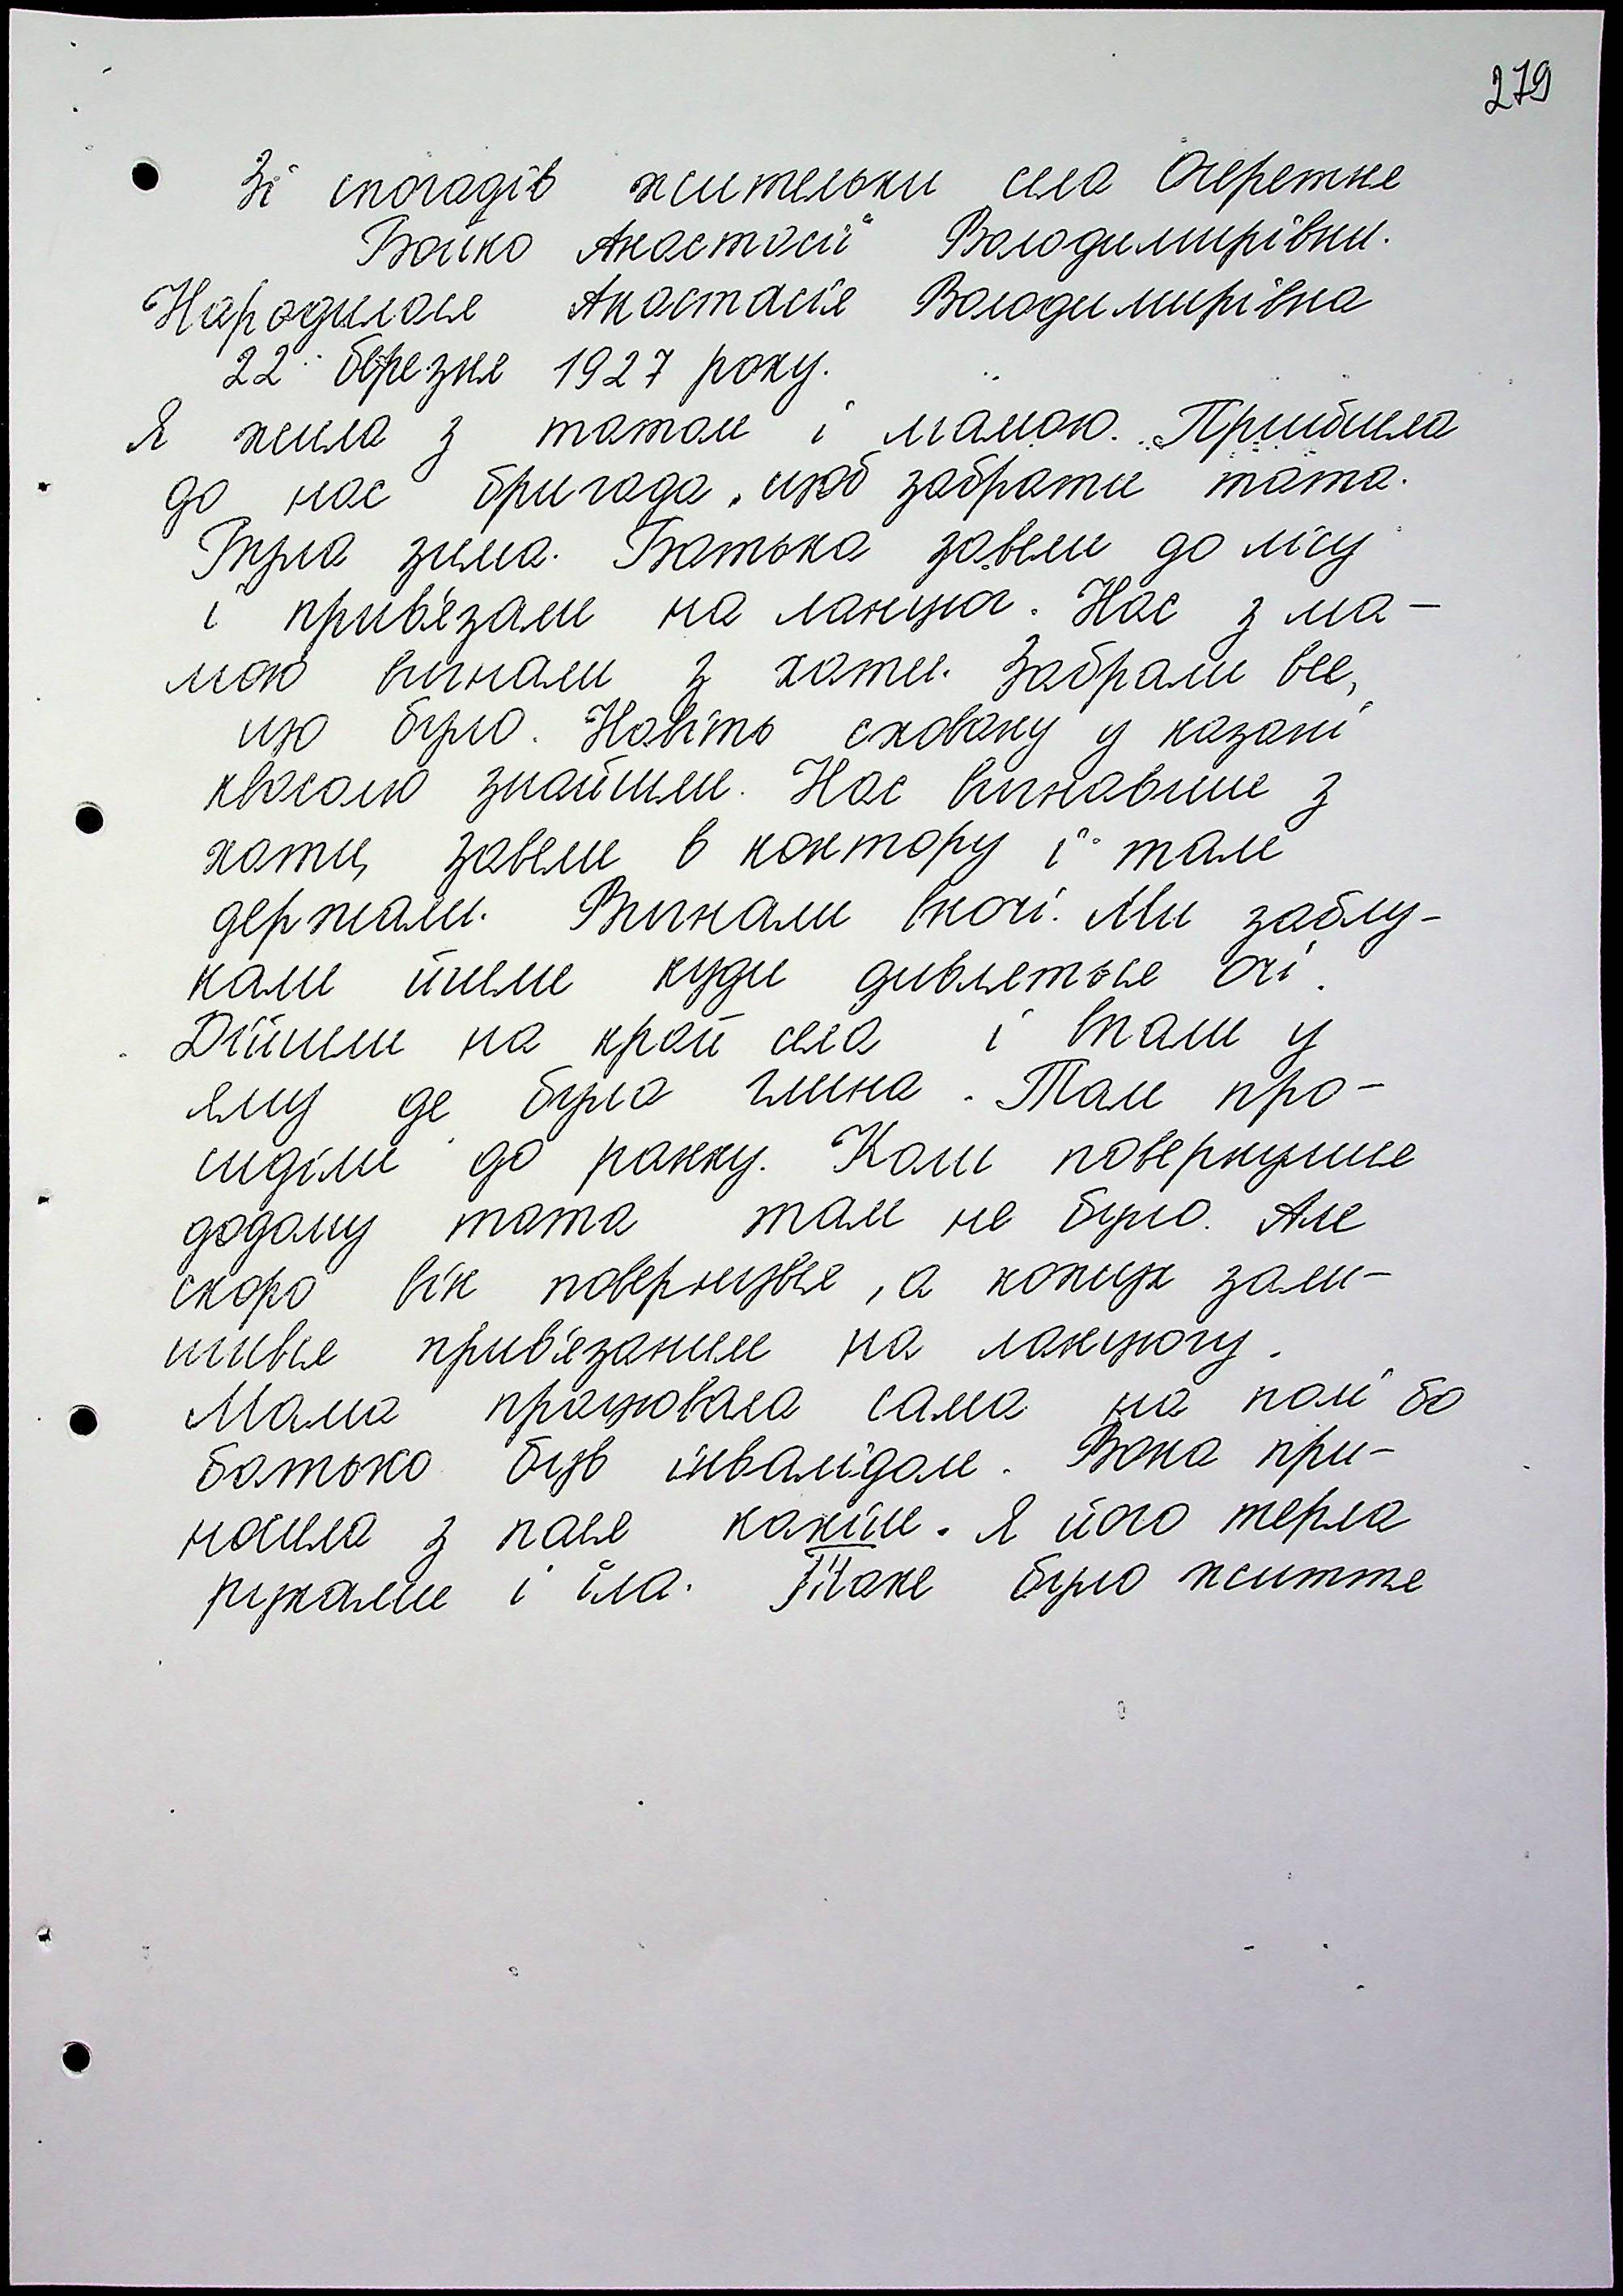 279
Зі спогадів жительки села Очеретне
Бойко Анастасії Володимирівни.
Народилася Анастасія Володимирівна
22 березня 1927 року.
Я жила з татом і мамою. Прийшла
до нас бригада, щоб забрати тата.
Була зима. Батька завели до лісу
і прив'язали на ланцюг. Нас з ма-
мою вигнали з хати. Забрали все,
що було. Навіть сховану у казані
квасолю знайшли. Нас вигнавши з
хати, завели в контору і там
держали. Вигнали вночі. Ми заблу-
кали йшли куди дивляться очі.
Дійшли на край села і впали у
яму де була глина. Там про-
сиділи до ранку. Коли повернулися
додому тата там не було. Але
скоро він повернувся, а кожух зали-
шився прив'язаним на ланцюгу.
Мама працювала сама на полі бо
батько був інвалідом. Вона при-
носила з поля качим. Я його терла
руками і їла. Таке було життя